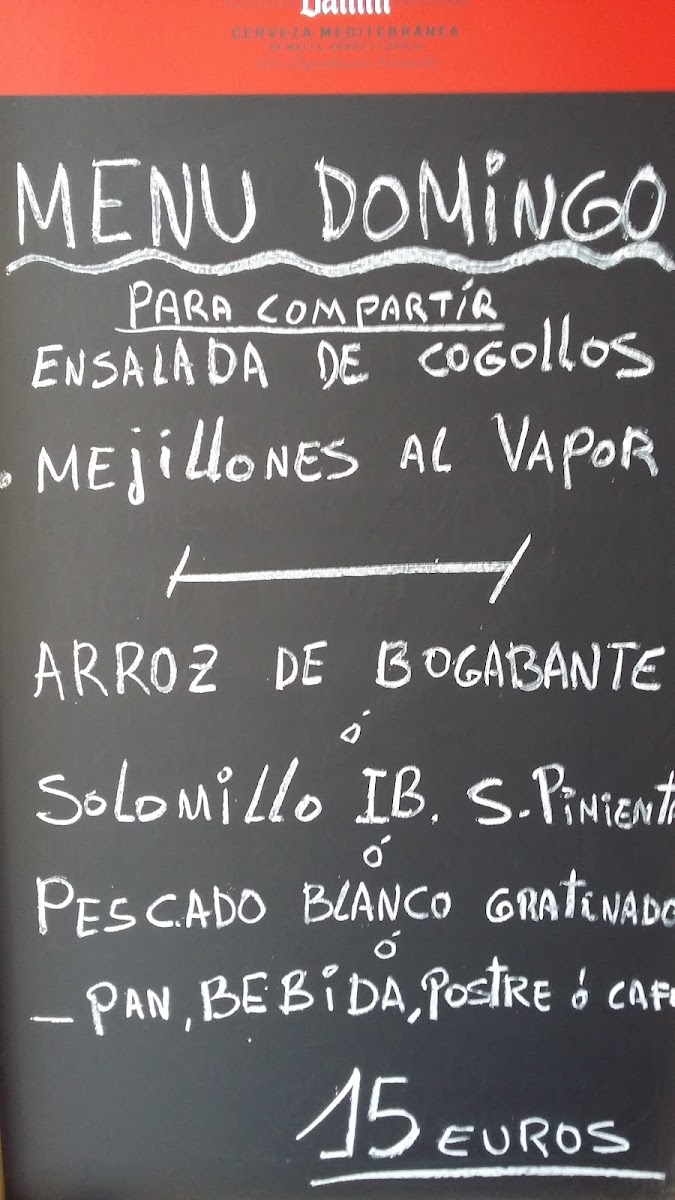 Damm
CERVEZA MEDITERRÁNEA
MENU DOMINGO
PARA COMPARTÍR
ENSALADA DE COGOLLOS
. MEJILLONES AL VAPOR
ARROZ DE BOGABANTE
ó
SOLOMILLO IB. S. PIMIENTA
ó
PESCADO BLANCO GRATINADO
ó
_ PAN, BEBIDA, POSTRE ó CAFE
15 EUROS